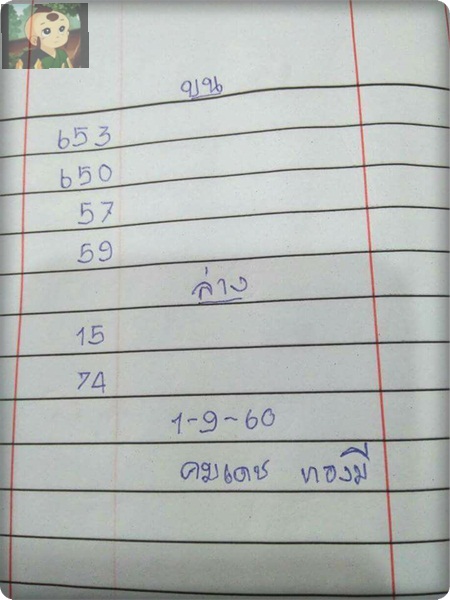 บน
653
650
57
59
ล่าง
15
74
1-9-60
คมเดช ทองมี